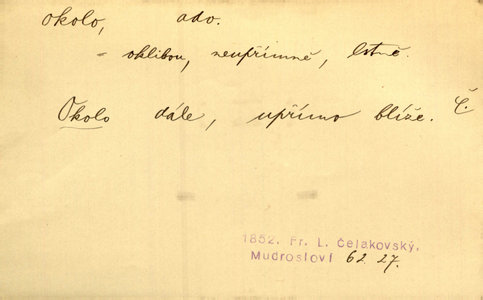 okolo, adv.
- oklikou, neupřímně, lstně.
Okolo dále, upřímo blíže. Č.
1852. Fr. L. Čelakovský,
Mudrosloví 62 27.